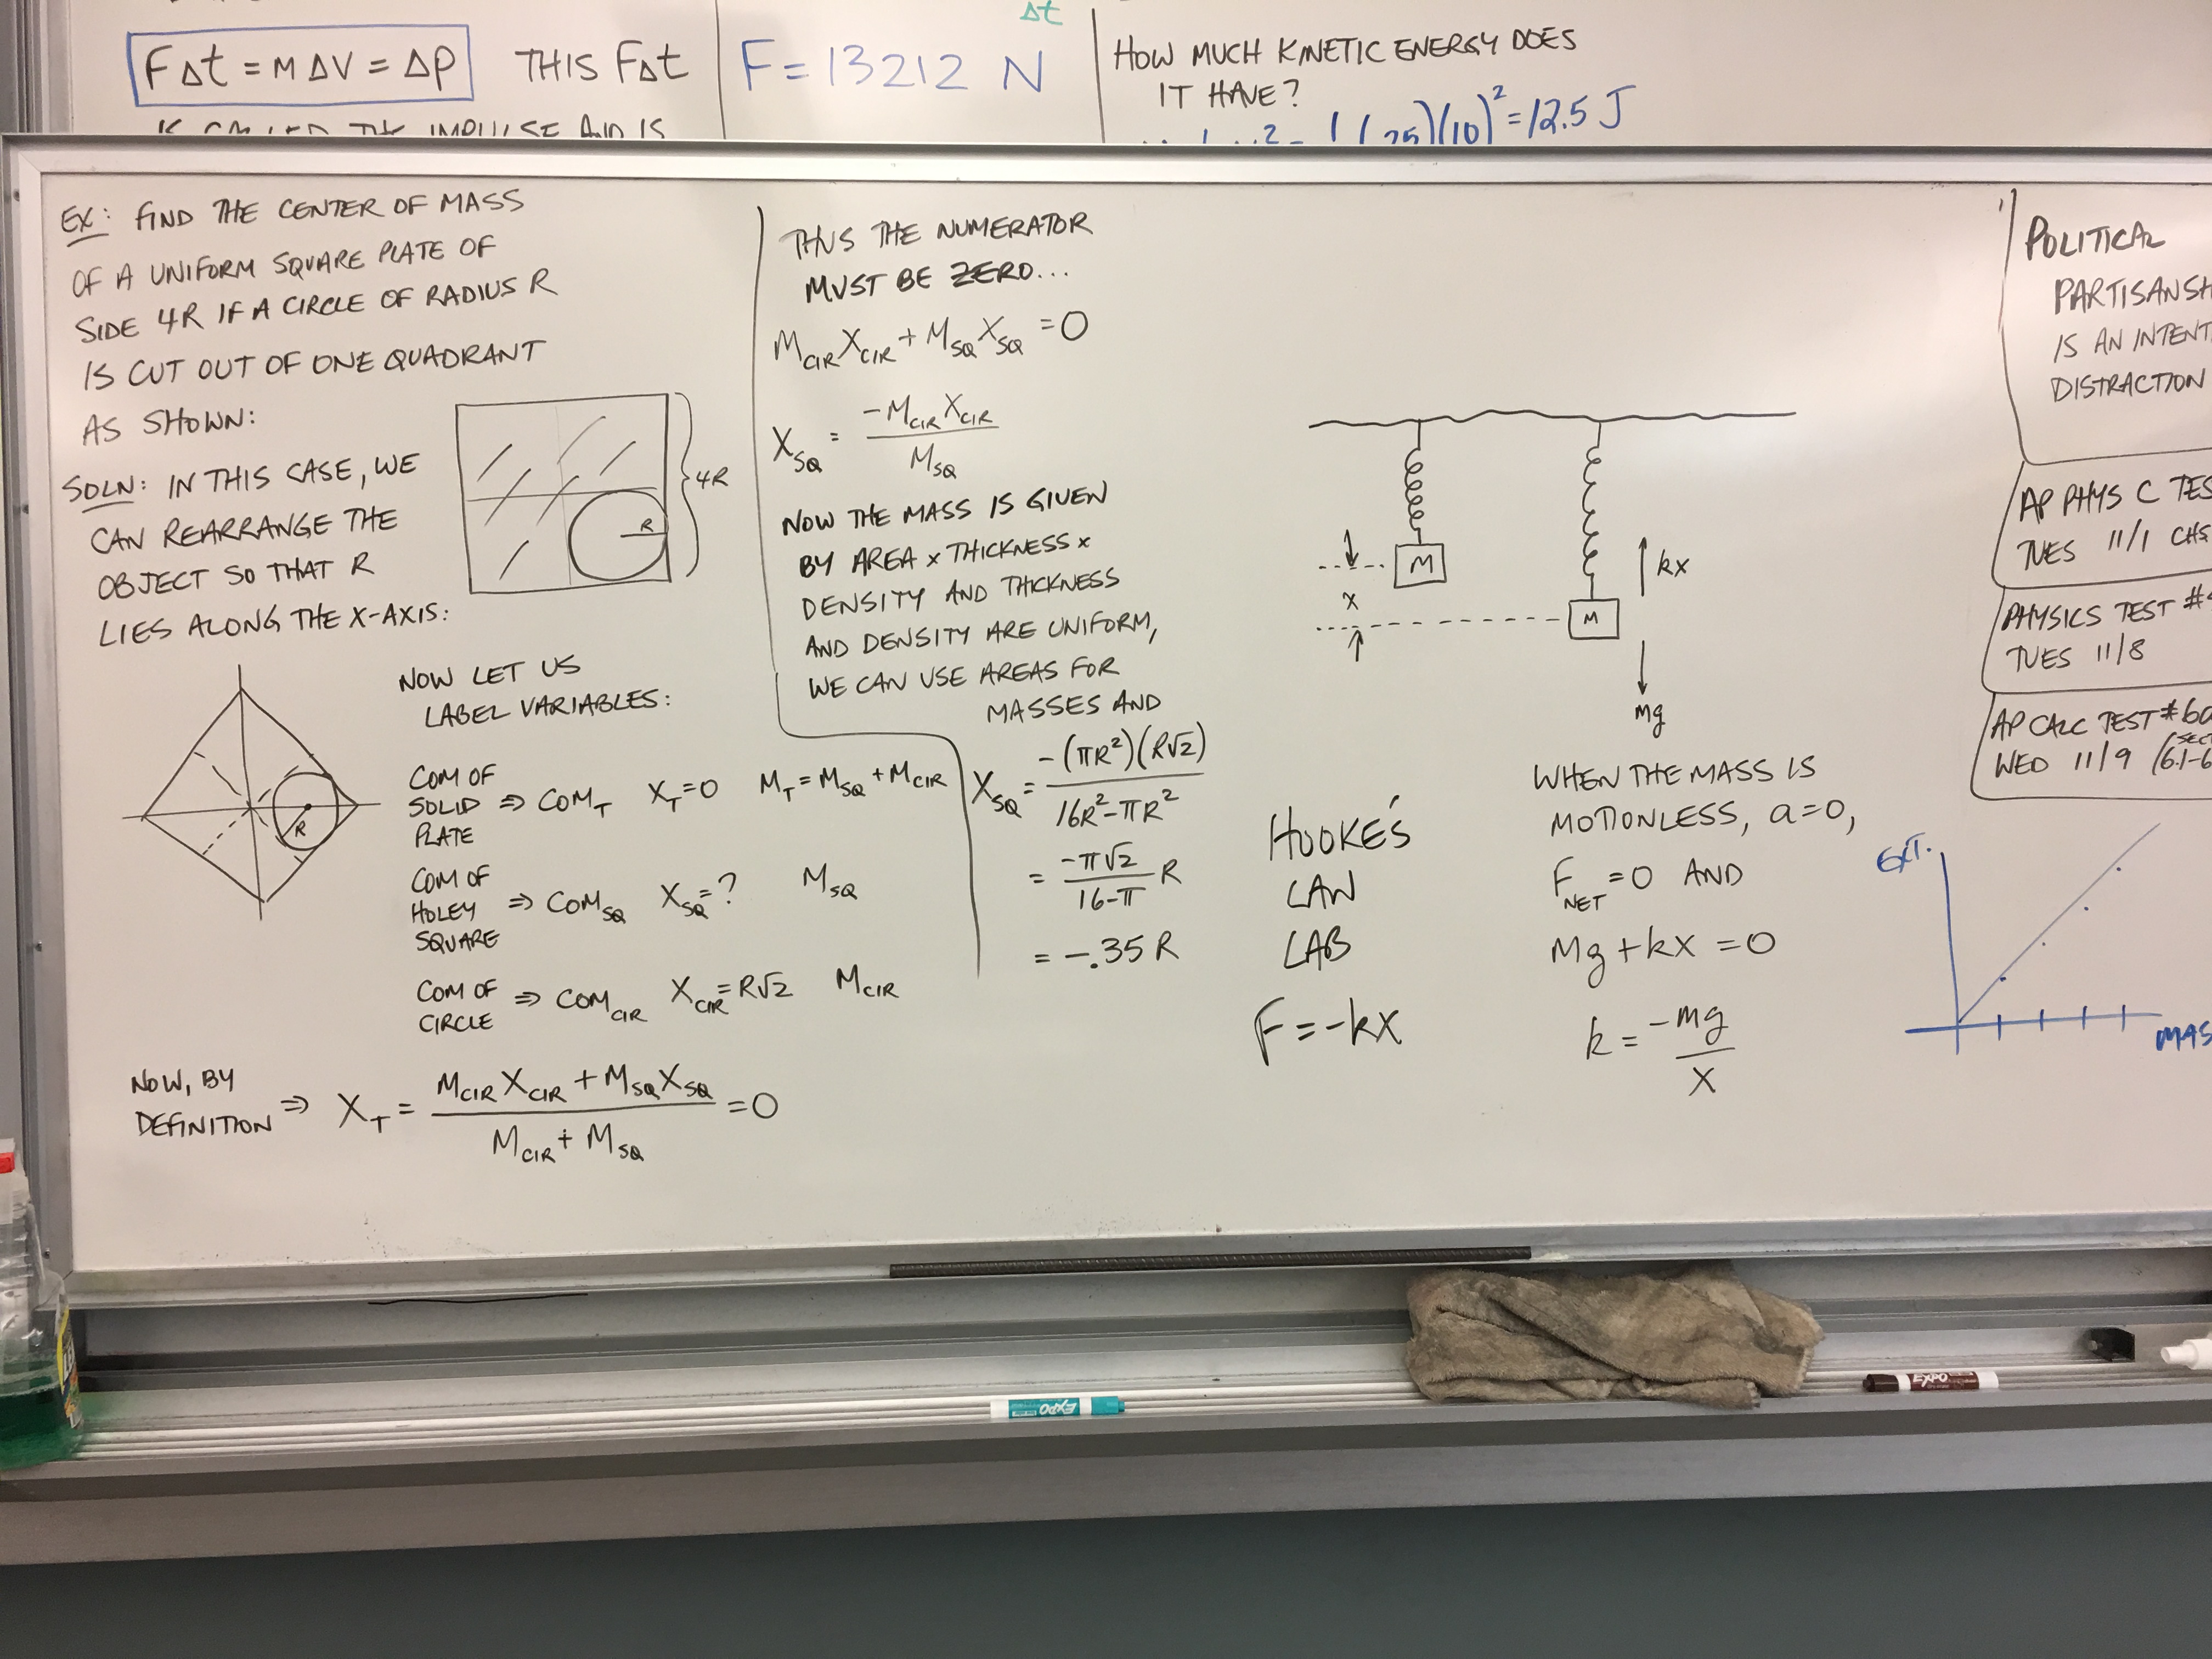 Δt
FΔt = MΔV = Δp THIS FΔt
IS CALLED THE IMPULSE AND IS
F = 13212 N
HOW MUCH KINETIC ENERGY DOES
IT HAVE?
(.25)(10)² = 12.5 J
EX: FIND THE CENTER OF MASS
OF A UNIFORM SQUARE PLATE OF
SIDE 4R IF A CIRCLE OF RADIUS R
IS CUT OUT OF ONE QUADRANT
AS SHOWN:
4R
R
SOLN: IN THIS CASE, WE
CAN REARRANGE THE
OBJECT SO THAT R
LIES ALONG THE X-AXIS:
R
NOW LET US
LABEL VARIABLES:
COM OF
SOLID ⇒ COM_T X_T=0 M_T=M_SQ+M_CIR
PLATE
COM OF
HOLEY ⇒ COM_SQ X_SQ=? M_SQ
SQUARE
COM OF ⇒ COM_CIR X_CIR=R√2 M_CIR
CIRCLE
NOW, BY
DEFINITION ⇒ X_T = (M_CIR X_CIR + M_SQ X_SQ)/(M_CIR + M_SQ) = 0
THUS THE NUMERATOR
MUST BE ZERO...
M_CIR X_CIR + M_SQ X_SQ = 0
X_SQ = -M_CIR X_CIR/M_SQ
NOW THE MASS IS GIVEN
BY AREA x THICKNESS x
DENSITY AND THICKNESS
AND DENSITY ARE UNIFORM,
WE CAN USE AREAS FOR
MASSES AND
X_SQ = -(πR²)(R√2)/(16R²-πR²)
= -π√2/(16-π) R
= -.35 R
M
x
M
kx
Mg
HOOKE'S
LAW
LAB
F = -kx
WHEN THE MASS IS
MOTIONLESS, a=0,
F_NET = 0 AND
Mg + kx = 0
k = -mg/x
EXT.
MAS
POLITICAL
PARTISANSH
IS AN INTENT
DISTRACTION
AP PHYS C TES
TUES 11/1 CHS
PHYSICS TEST #
TUES 11/8
AP CALC TEST #6a
WED 11/9 (SECT 6.1-6
EXPO
EXPO